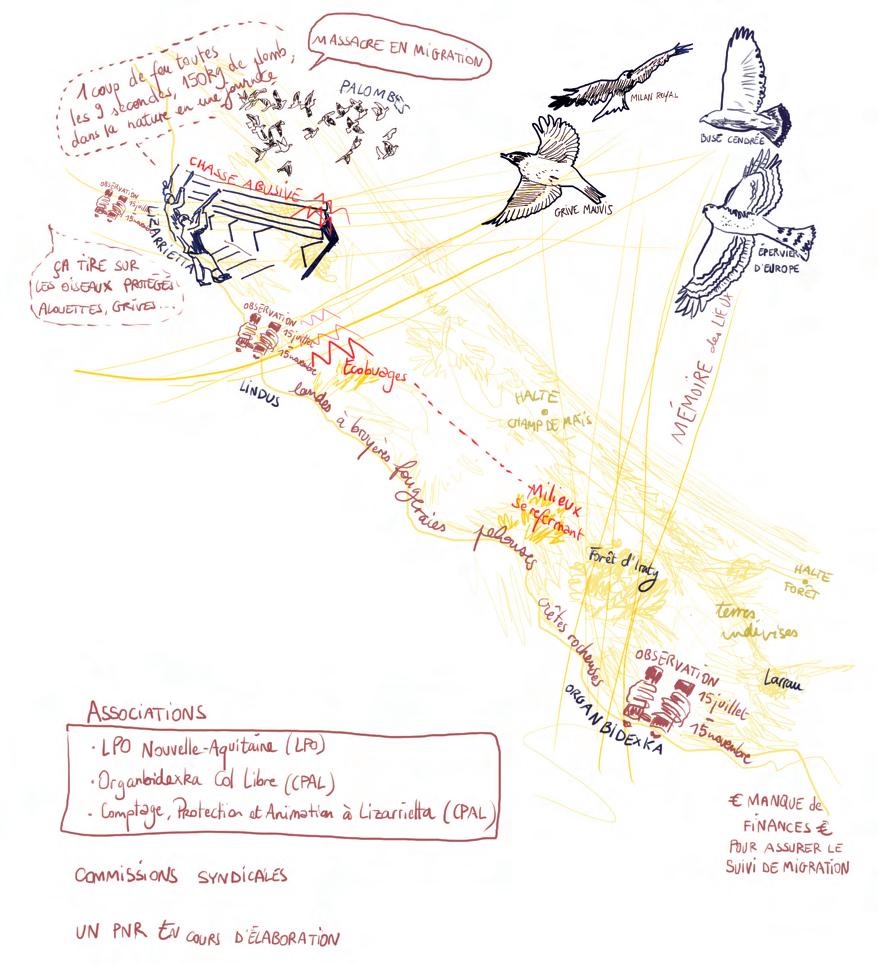 1 coup de feu toutes
les 9 secondes, 150Kg de plomb,
dans la nature en une journée
MASSACRE EN MIGRATION
PALOMBES
MILAN ROYAL
BUSE CENDRÉE
GRIVE MAUVIS
ÉPERVIER
D'EUROPE
CHASSE ABUSIVE
OBSERVATION
15 juillet
15 novembre
LIZARRIETTA
ÇA TIRE SUR
LES OISEAUX PROTÉGÉS
ALOUETTES, GRIVES...
MÉMOIRE des LIEUX
OBSERVATION
15 juillet
15 novembre
LINDUS
Écobuages
landes à bruyères fougeraies pelouses
HALTE
CHAMP DE MAÏS
Milieux
se refermant
Forêt d'Iraty
HALTE
FORÊT
terres
indivises
crêtes rocheuses
Larrau
OBSERVATION
15 juillet
15 novembre
ORGANBIDEXKA
ASSOCIATIONS
· LPO Nouvelle-Aquitaine (LPO)
· Organbidexka Col Libre (CPAL)
· Comptage, Protection et Animation à Lizarrietta (CPAL)
COMMISSIONS SYNDICALES
UN PNR EN COURS D'ÉLABORATION
€ MANQUE de
FINANCES €
POUR ASSURER LE
SUIVI DE MIGRATION